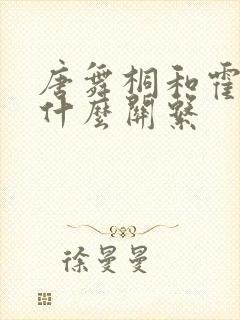 唐舞桐和霍
什麼關繫
徐曼曼